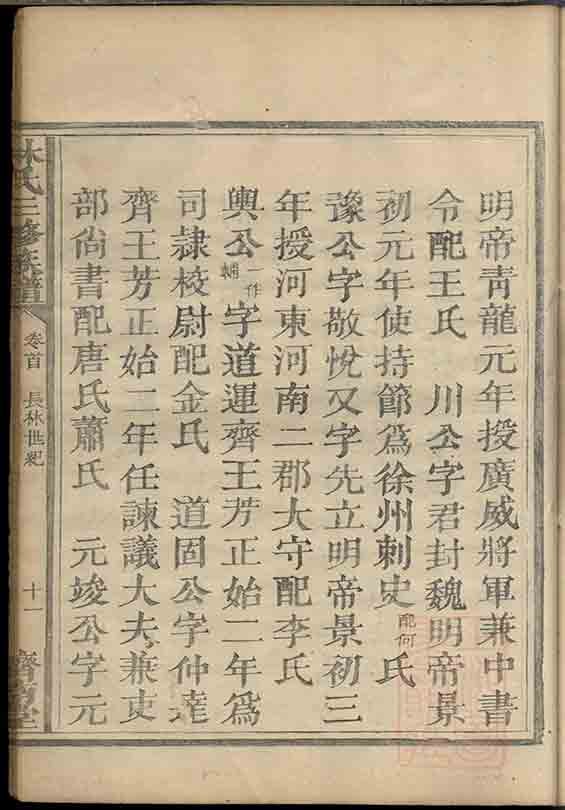 明帝青龍元年授廣威將軍兼中書
令配王氏　川公字君封魏明帝景
初元年使持節爲徐州刺史配何氏
豫公字敬悅又字先立明帝景初三
年授河東河南二郡大守配李氏
輿公一作輔字道運齊王芳正始二年爲
司隷校尉配金氏　道固公字仲達
齊王芳正始二年任諫議大夫兼吏
部尙書配唐氏蕭氏　元竣公字元
林氏三修族譜　卷首　長林世紀　十一　堂